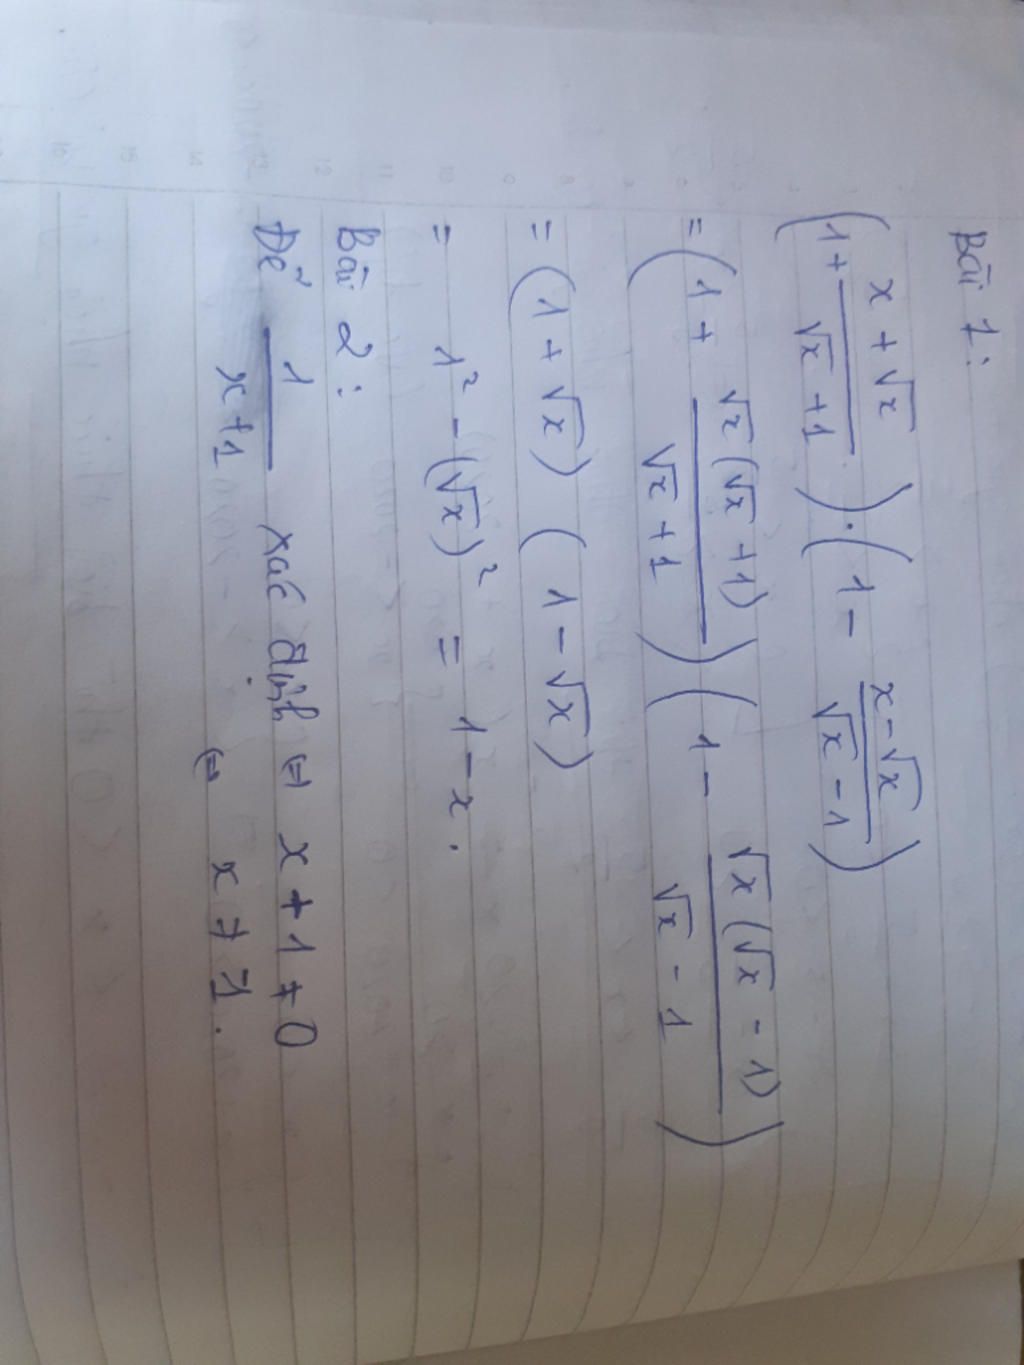 Bài 1:
(1 + (x + √x)/(√x + 1)) · (1 - (x - √x)/(√x - 1))
= (1 + √x(√x + 1)/(√x + 1)) (1 - √x(√x - 1)/(√x - 1))
= (1 + √x) (1 - √x)
= 1² - (√x)² = 1 - x.
Bài 2:
Để 1/(x+1) xác định ⇔ x + 1 ≠ 0
⇔ x ≠ -1.